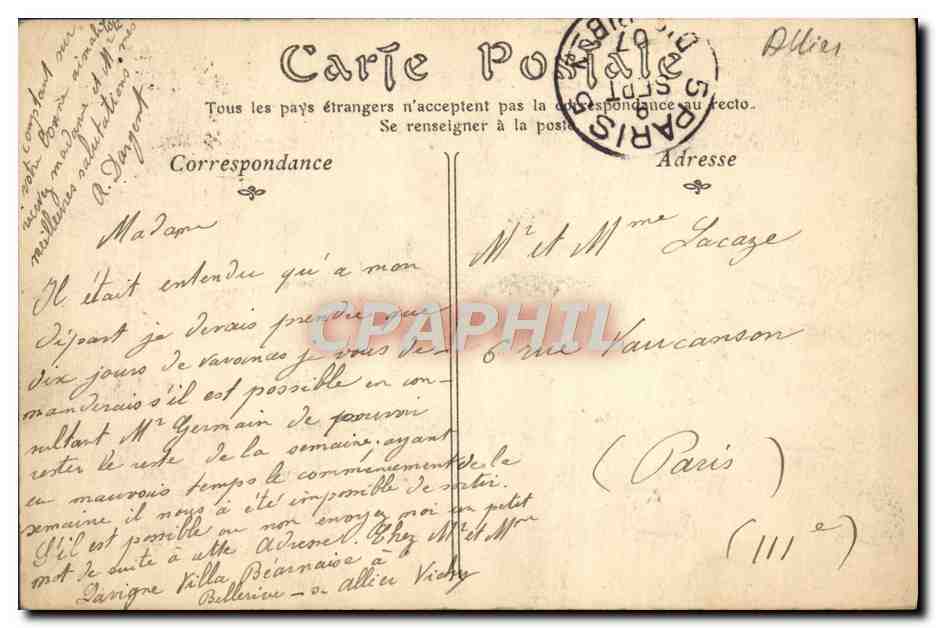 Carte Postale
Tous les pays étrangers n'acceptent pas la correspondance au recto.
Se renseigner à la poste
Correspondance
Adresse
Allier
5 PARIS 5
8
SEPT
07
CPAPHIL
Madame
Il était entendu qu'a mon
départ je devais prendre que
dix jours de vavances je vous de-
manderais s'il est possible en con-
sultant Mr Germain de pouvoir
rester le reste de la semaine, ayant
eu mauvois temps le commencement de la
semaine il nous à été impossible de sortir.
S'il est possible ou non envoyez moi un petit
mot de suite à cette Adresse. Chez Mr et Mme
Lavigne Villa Béarnaise à
Bellerive - Allier Vichy
comptant sur
votre bonne aimabilité
recevez madame et Mr mes
meilleures salutations
A. Dargent
Mr et Mme Lacaze
6 rue Vaucanson
(Paris)
(IIIe)